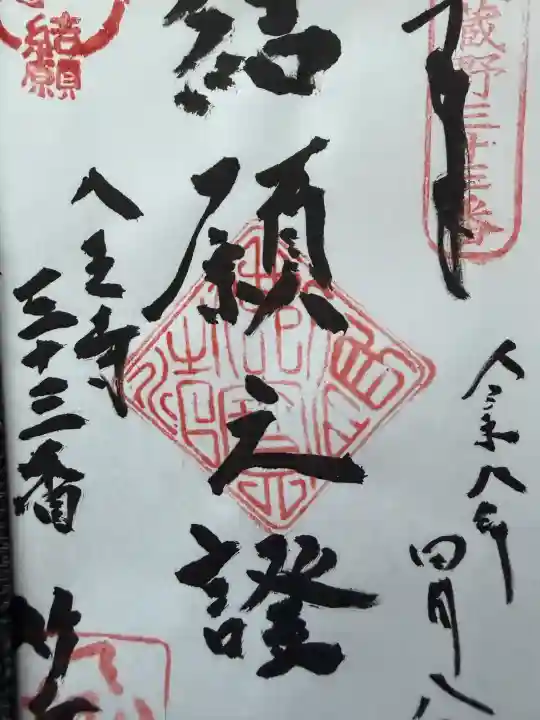 蔵野三十三番
令和八年
四月八
結願之證
八王寺
三十三番
竹
結願